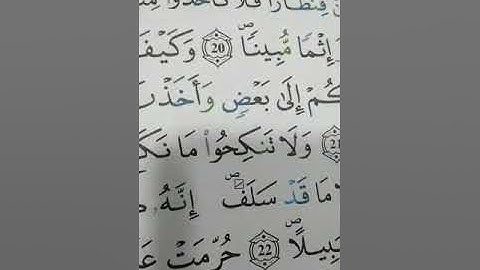 قِنطَارًا فَلَا تَأْخُذُوا۟
إِثْمًا مُّبِينًا 20 وَكَيْفَ
كُمْ إِلَىٰ بَعْضٍ وَأَخَذْ
21 وَلَا تَنكِحُوا۟ مَا نَكَ
مَا قَدْ سَلَفَ إِنَّهُۥ
بِيلًا 22 حُرِّمَتْ عَ